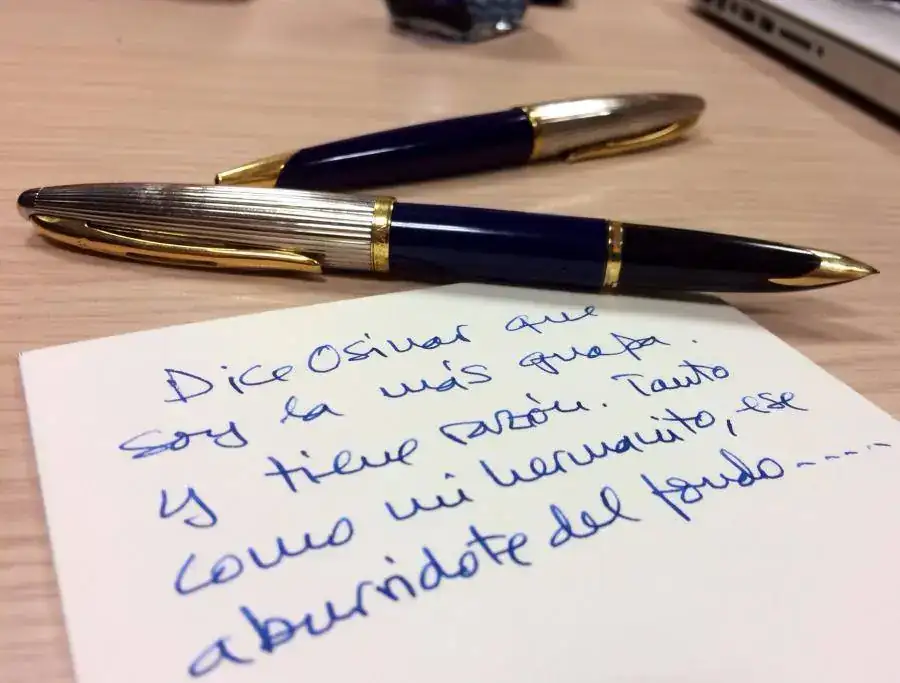 Dice Osimar que
soy la más guapa.
y tiene razón. Tanto
como mi hermanito, ese
aburridote del fondo.....